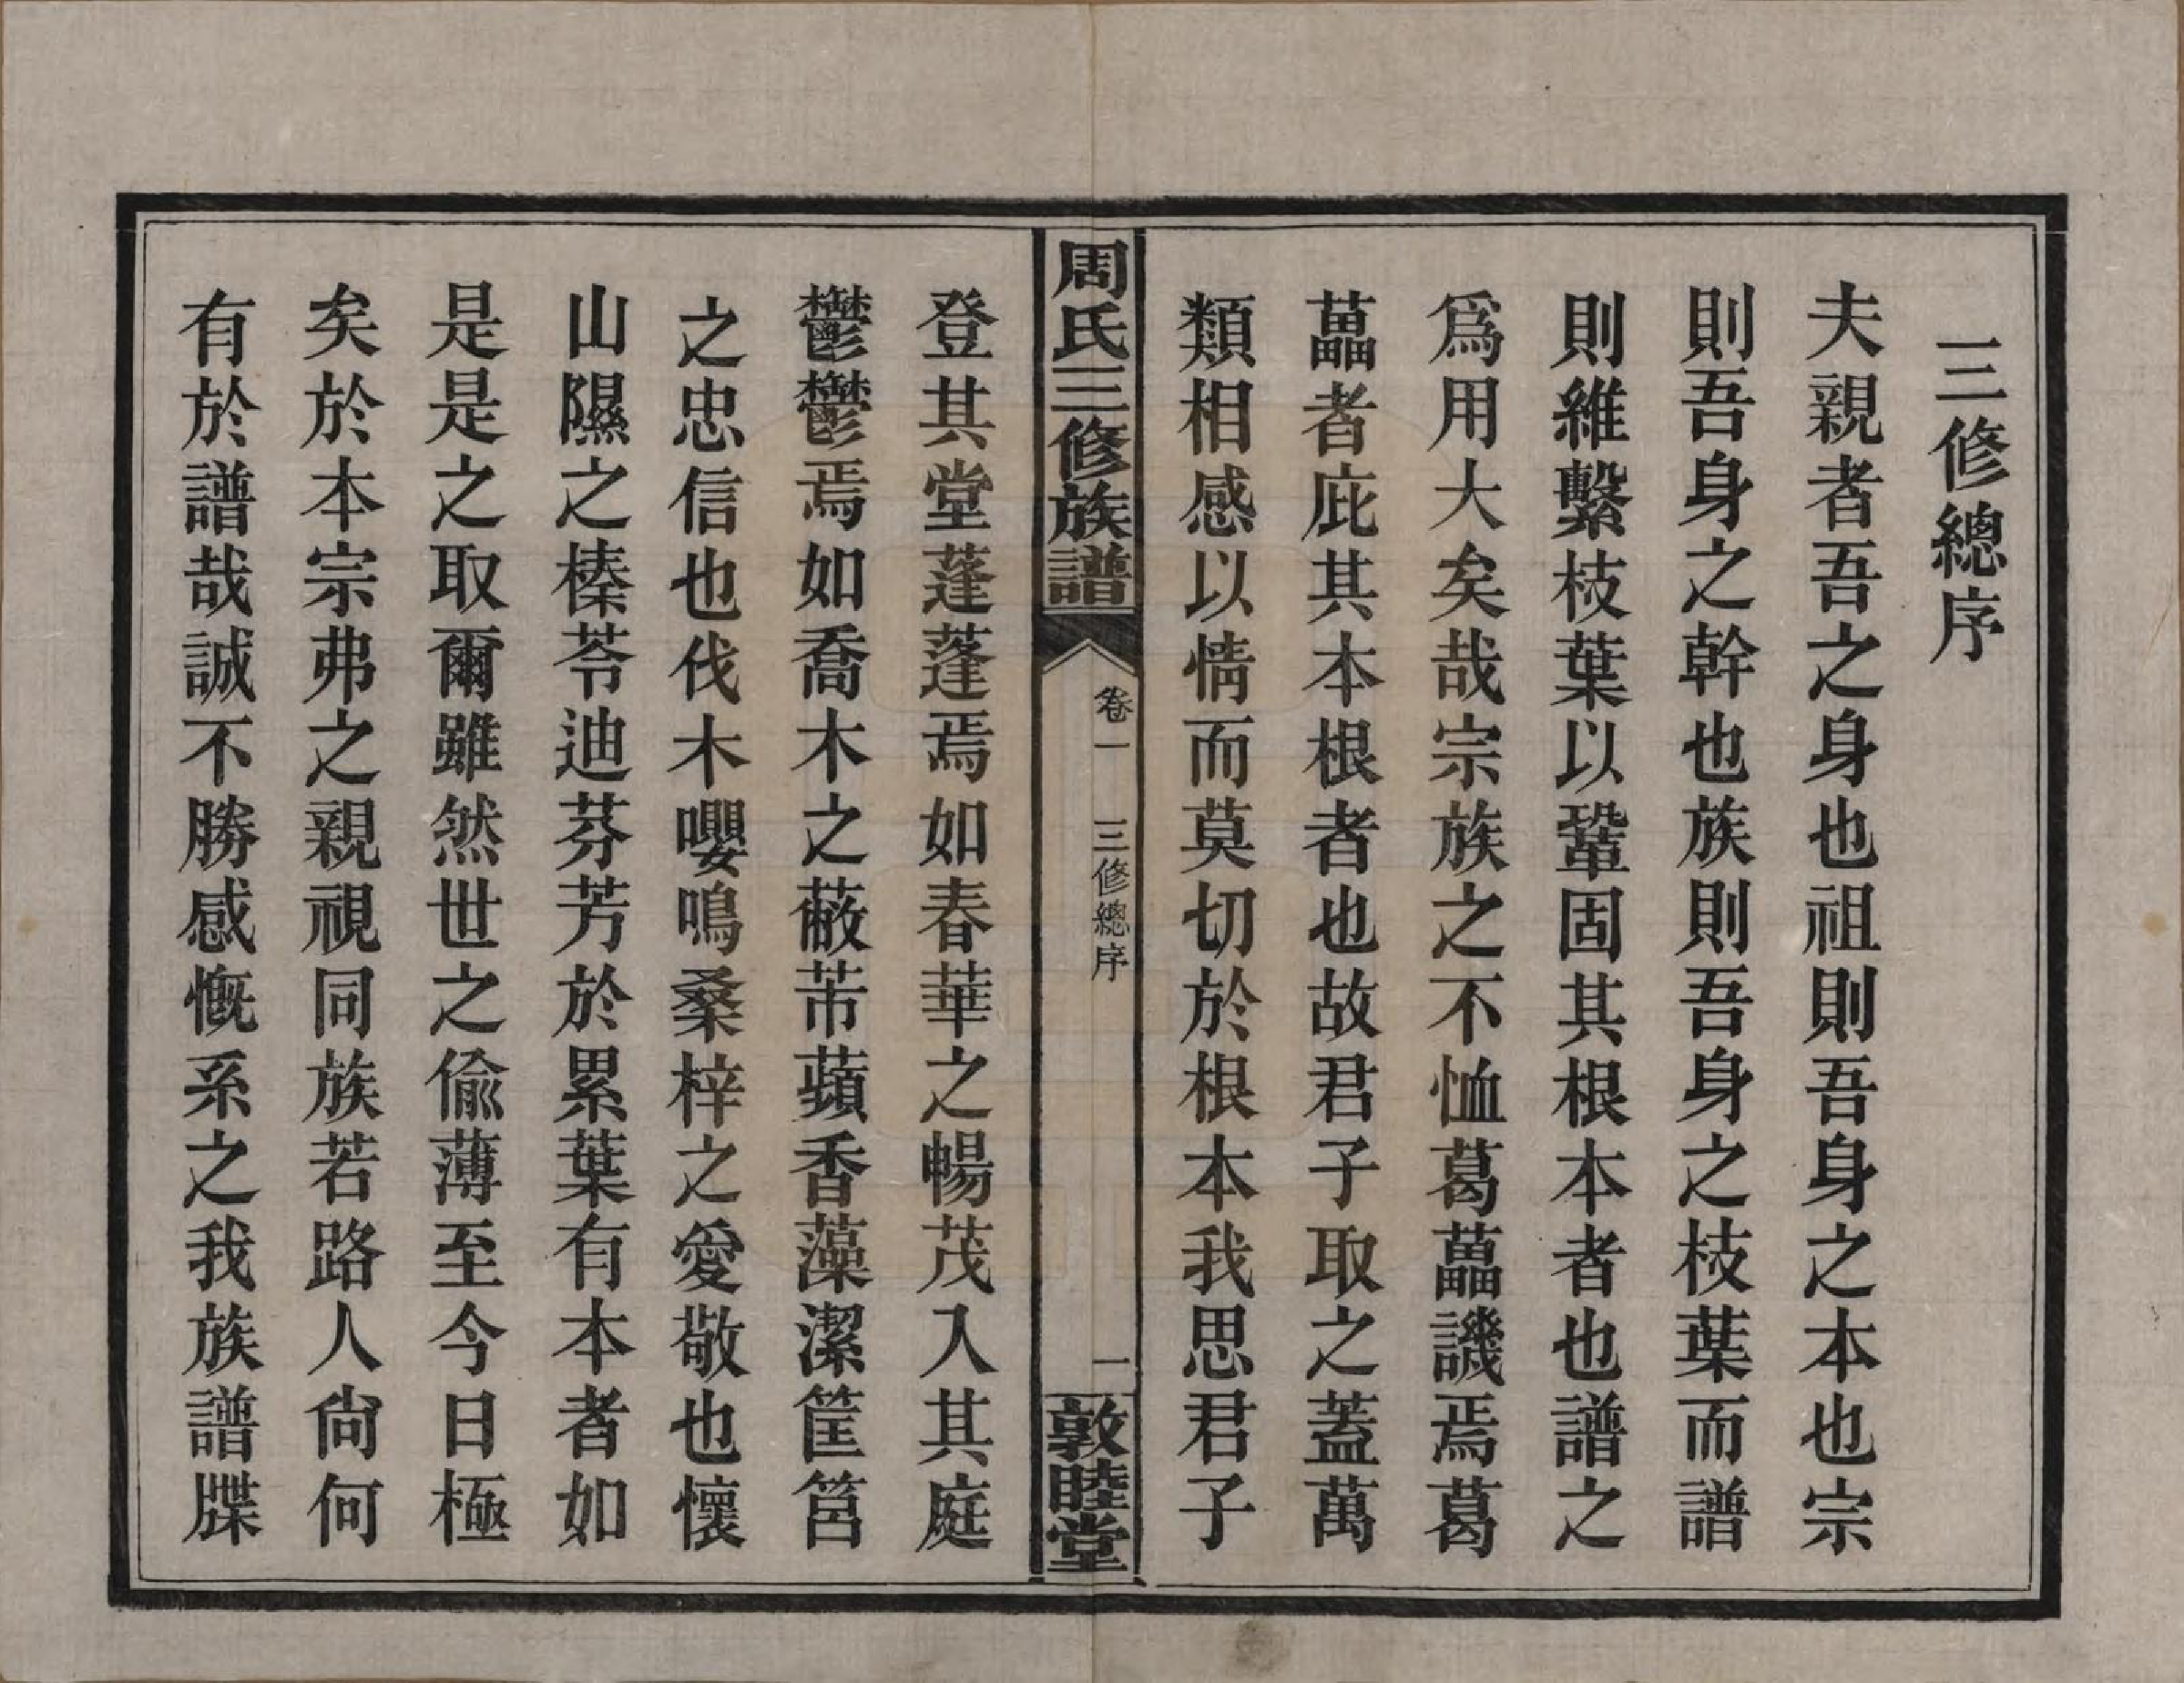 三修總序
夫親者吾之身也祖則吾身之本也宗
則吾身之幹也族則吾身之枝葉而譜
則維繫枝葉以鞏固其根本者也譜之
爲用大矣哉宗族之不恤葛藟譏焉葛
藟者庇其本根者也故君子取之蓋萬
類相感以情而莫切於根本我思君子
周氏三修族譜
卷一 三修總序
一
敦睦堂
登其堂蓬蓬焉如春華之暢茂入其庭
鬱鬱焉如喬木之蔽芾蘋香藻潔筐筥
之忠信也伐木嚶鳴桑梓之愛敬也懷
山隰之榛苓迪芬芳於累葉有本者如
是是之取爾雖然世之偷薄至今日極
矣於本宗弗之親視同族若路人尙何
有於譜哉誠不勝感慨系之我族譜牒